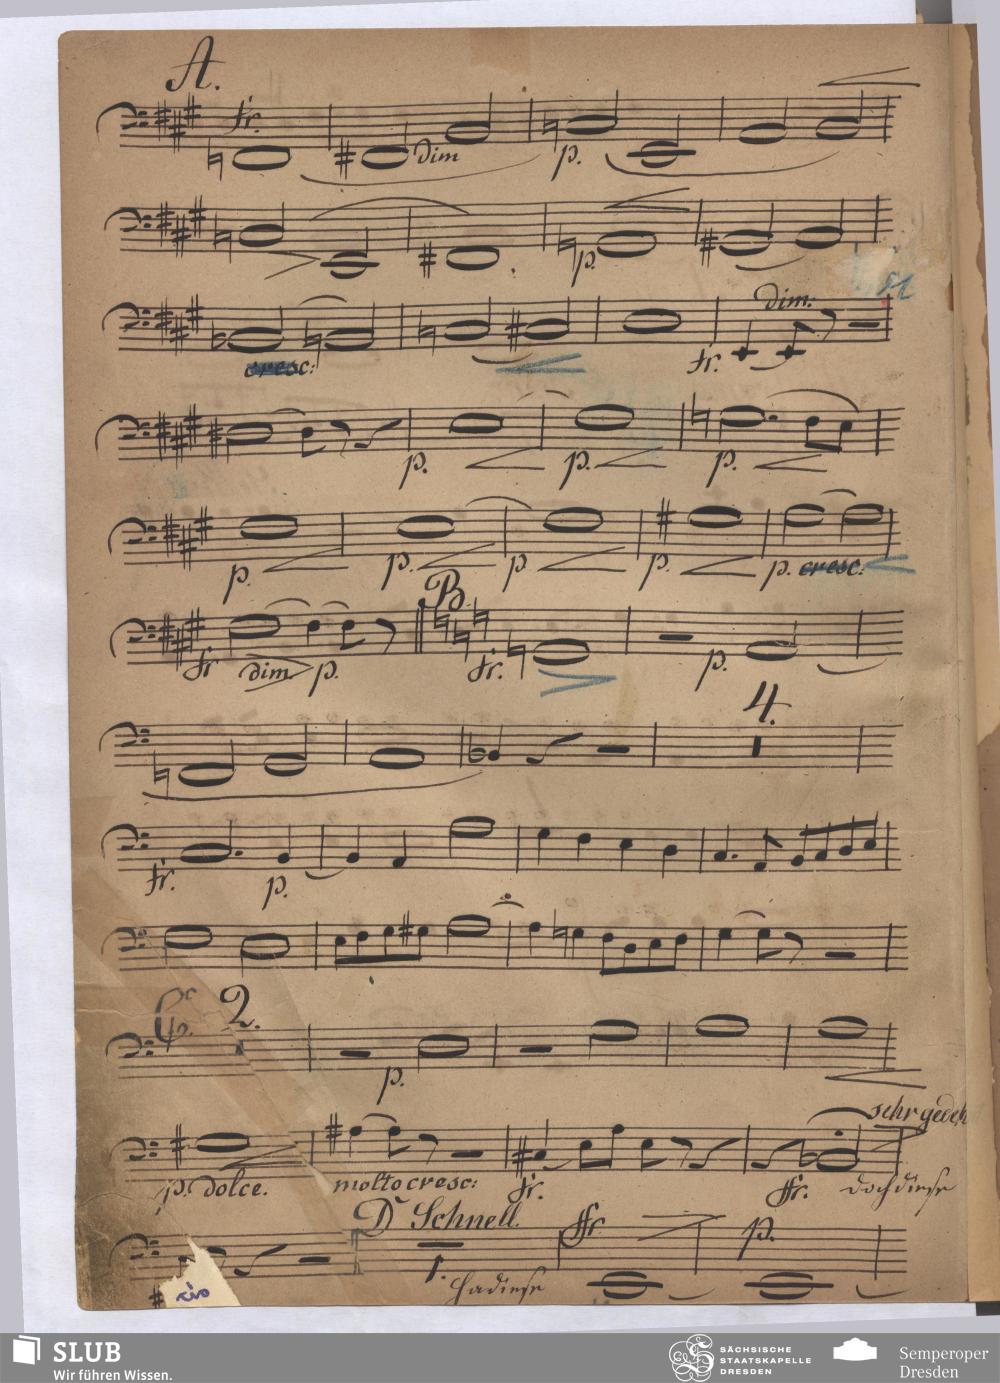 A.
fr.
dim
p.
p.
dim:
cresc:
fr.
p. p. p.
p. p. p. p. p. cresc:
B.
fr dim p. fr. p.
4.
fr. p.
C. 2.
p.
sehr gedeh
p. dolce. molto cresc: fr. ffr. doch diese
D Schnell. ffr p.
1.
SLUB
Wir führen Wissen.
SÄCHSISCHE
STAATSKAPELLE
DRESDEN
Semperoper
Dresden